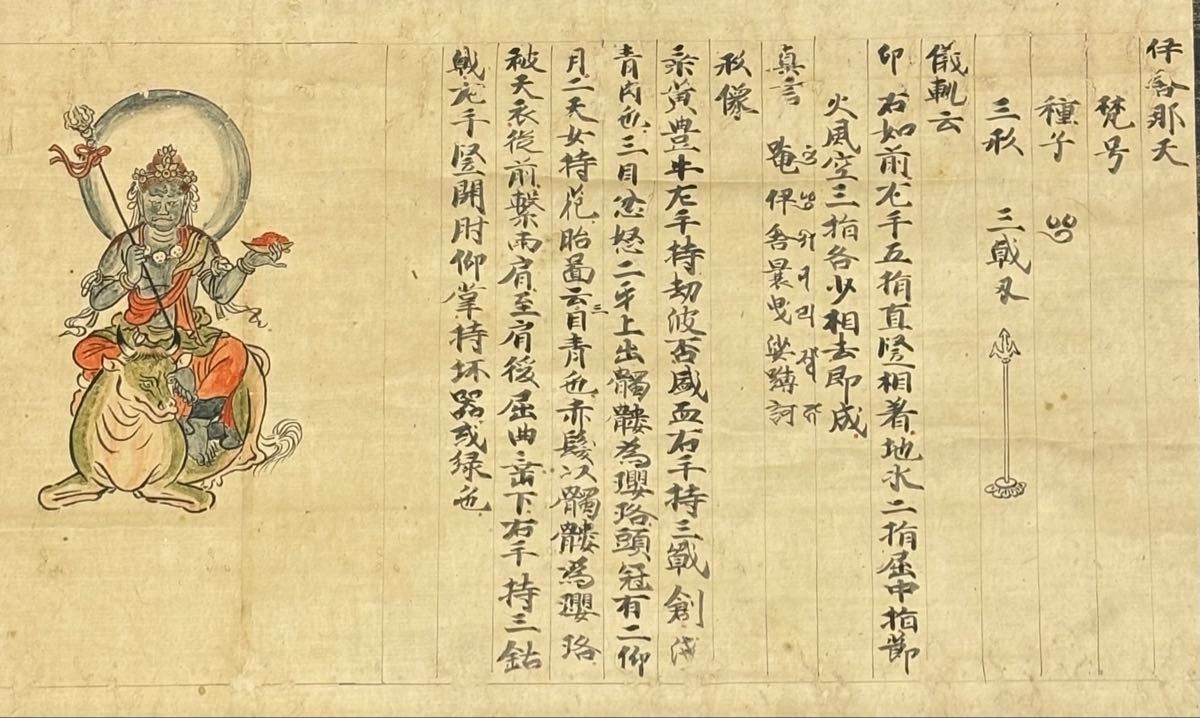 伊舎那天
梵号
種子
三形 三戟叉
儀軌云
印 右如前左手五指直竪相著地水二指屈中指節
火風空三指各少相去即成
真言 唵伊舎曩曳娑嚩訶
形像
乗黄豊牛左手持劫波盃盛血右手持三戟創浅
青肉色三目忿怒二牙上出髑髏為瓔珞頭冠有二仰
月二天女持花胎図云三目青色赤髪以髑髏為瓔珞
被天衣従前繋両肩至肩後屈曲垂下右手持三鈷
戟左手竪開肘仰掌持坏器或緑色